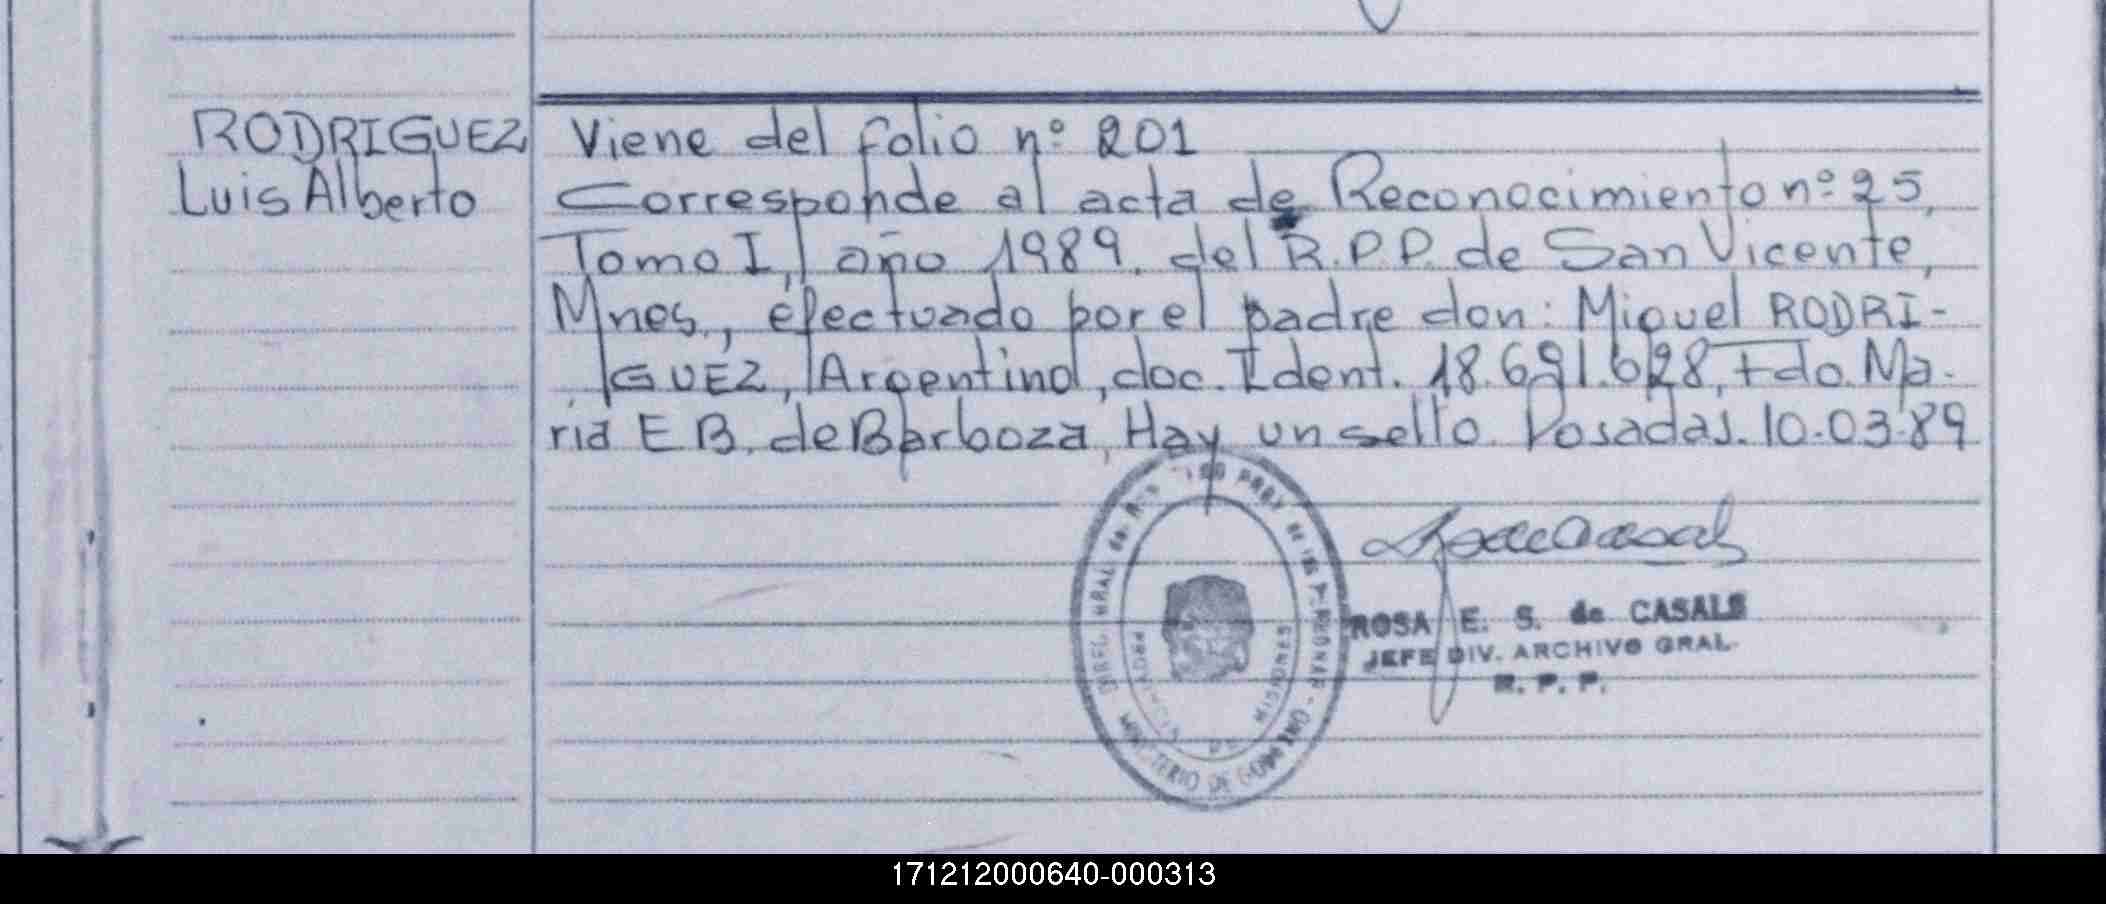 RODRIGUEZ
Luis Alberto
Viene del folio nº 201
Corresponde al acta de Reconocimiento nº 25,
Tomo I, año 1989, del R.P.P. de San Vicente,
Mnes., efectuado por el padre don: Miguel RODRI-
GUEZ, Argentino, doc. Ident. 18.691.628, Fdo. Ma-
ria E B. de Barboza, Hay un sello. Posadas. 10.03.89
ROSA E. S. de CASALS
JEFE DIV. ARCHIVO GRAL.
R. P. P.
MINISTERIO DE
171212000640-000313